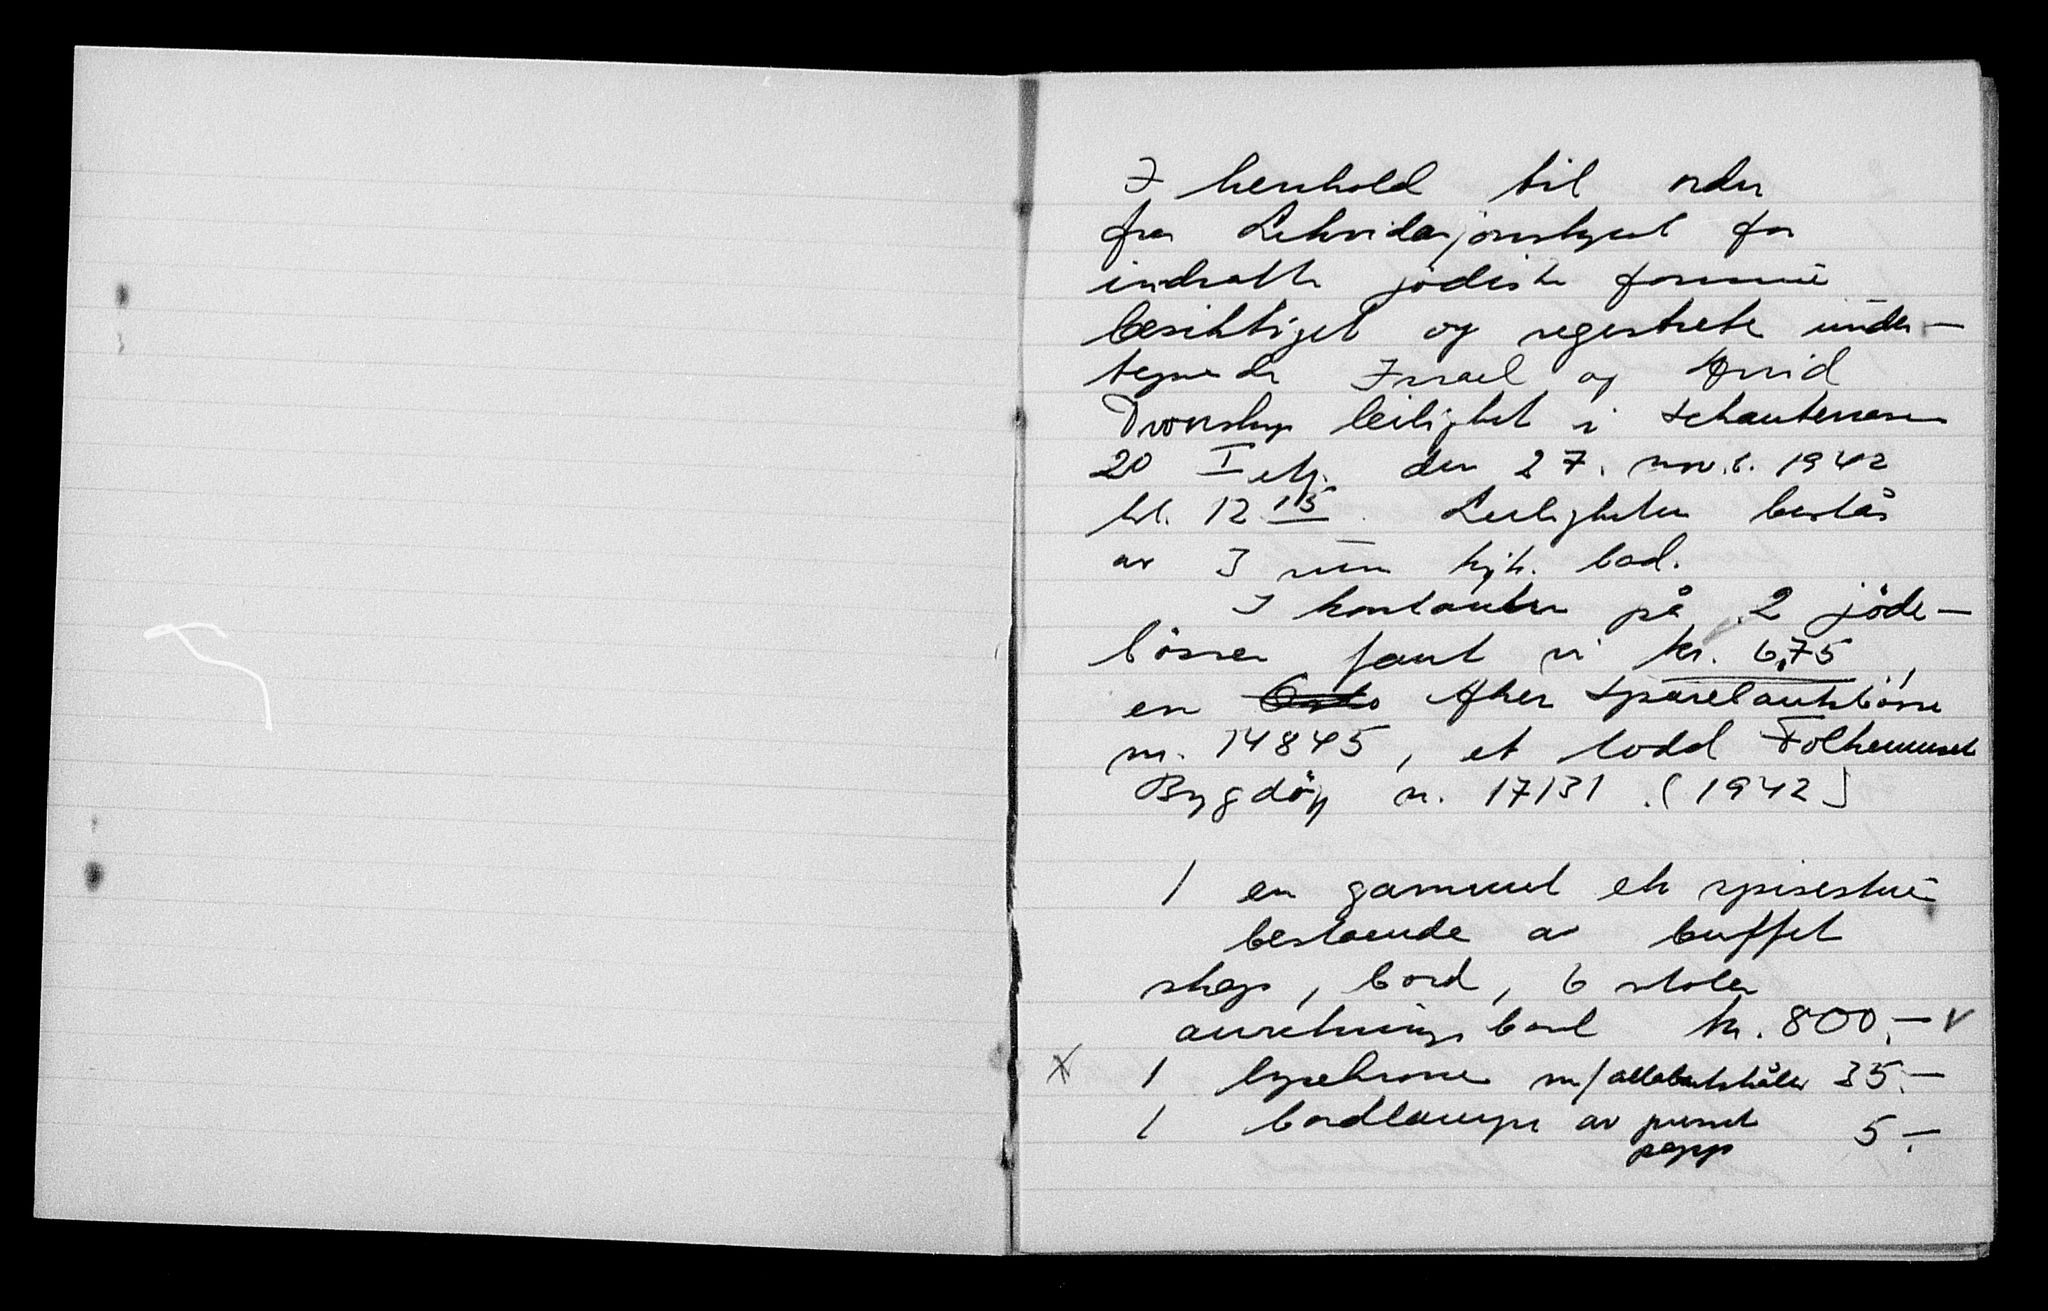 I henhold til order
fra Likvidasjonstyret for
inndratte jødiske formue
besiktiget og registrete under-
tegnede Israel og Arvid
Dvorskys leilighet i Schauterrasse
20 I etg. den 27. nov. 1942
kl. 12 15. Leiligheten består
av 3 rum kjk. bad.
I kontanter på 2 jöde-
bösser fant vi kr. 6,75,
en Aker Sparebankbösse
nr. 14845, et lodd Folkemuset
Bygdöy nr. 17131. (1942)
1 en gammel ek spisestue
bestaende av buffet
skap, bord, 6 stoler
anretningsbord kr. 800.- v
x 1 lysekrone m/ 35.-
1 bordlampe av presset papp 5.-